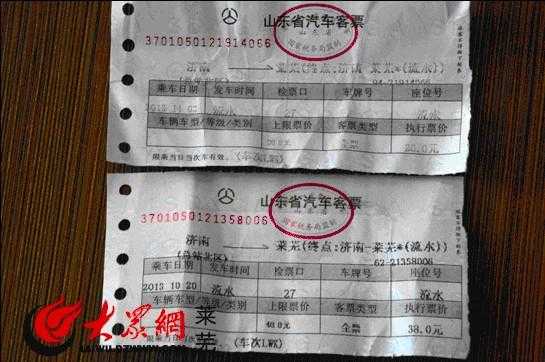 山东省汽车客票
山东省
国家税务局监制
3701050121914066
济南 → 莱芜(终点:济南 莱芜*(流水))
(总站北区) 94-21914066
乘车日期 发车时间 检票口 车牌号 座位号
流水 27 流水
车辆车型/等级/类别 上限票价 客票类型 执行票价
限乘当日当次车有效。 (车次LWK)
山东省汽车客票
山东省
国家税务局监制
3701050121358006
济南 → 莱芜(终点:济南 莱芜*(流水))
(总站北区) 62-21358006
乘车日期 发车时间 检票口 车牌号 座位号
2013 10 20 流水 27 流水
车辆车型/等级/类别 上限票价 客票类型 执行票价
40.0元 全票 38.0元
(车次LWK)
大眾網 莱芜